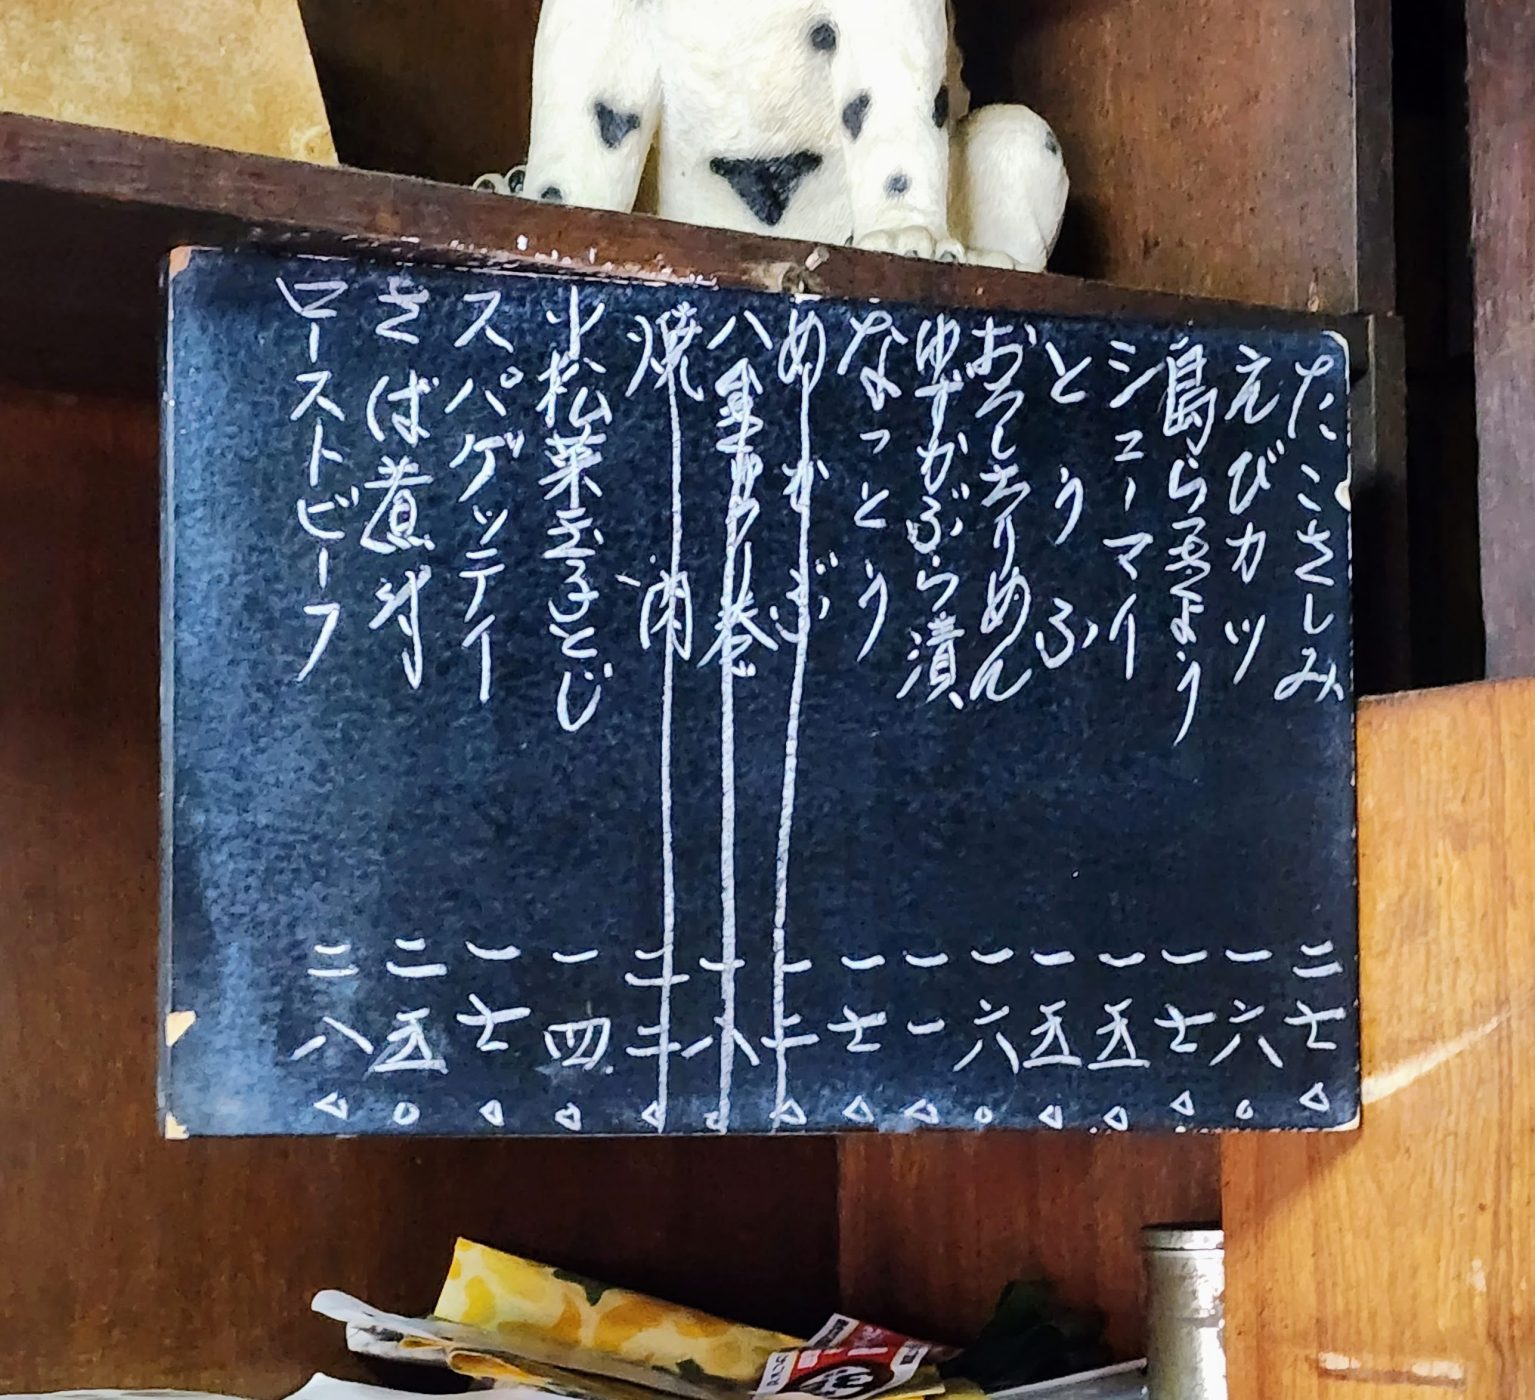 たこさしみ 二七〇
えびカツ 一六〇
島らっきょう 一七〇
シューマイ 一五〇
とうふ 一五〇
おろしちりめん 一六〇
ゆずかぶら漬 一一〇
なっとう 一七〇
めかぶ 一二〇
巻 一八〇
焼肉 二二〇
小松菜玉子とじ 一四〇
スパゲッティ 一七〇
さば煮付 二五〇
ローストビーフ 二八〇